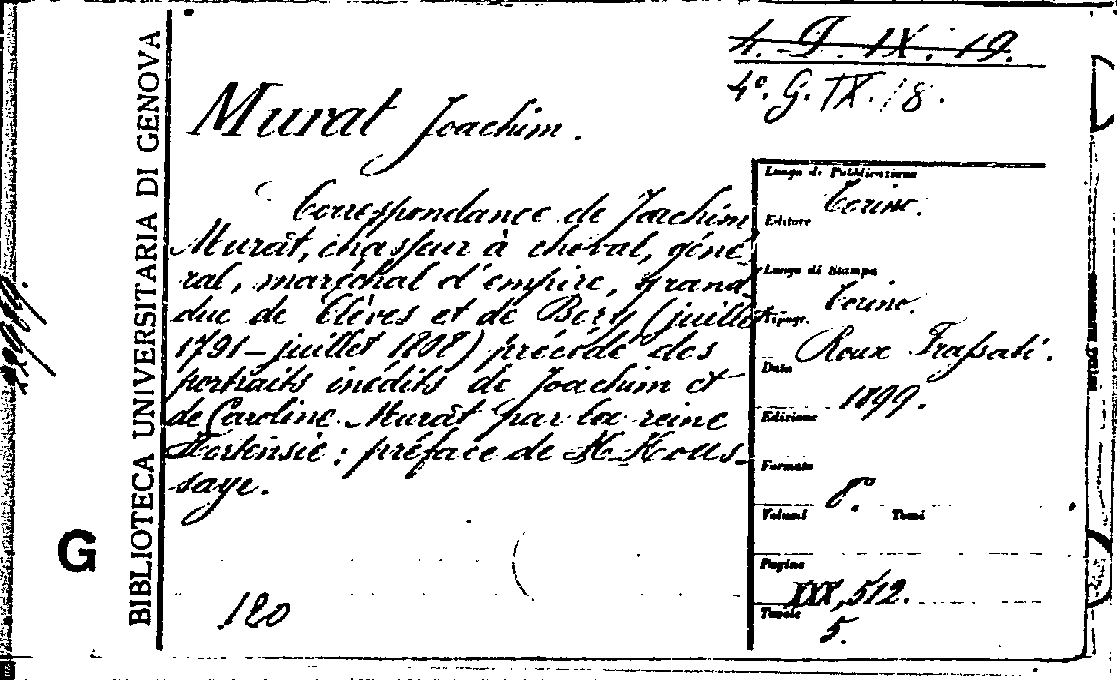 4. T. IX. 19.
4º. G. IX. 18.
BIBLIOTECA UNIVERSITARIA DI GENOVA
G
Murat Joachim.
Correspondance de Joachim
Murat, chasseur à cheval, géné-
ral, maréchal d'empire, grand-
duc de Clèves et de Berg (juillet
1791 - juillet 1808) précédé des
portraits inédits de Joachim et
de Caroline Murat par la reine
Hortensie: préface de H. Hous-
saye.
120
Luogo di Pubblicazione
Torino.
Editore
Luogo di Stampa
Torino.
Tipogr.
Roux Frassati.
Data
1899.
Edizione
Formato
8º.
Volumi Tomi
Pagine
XXX, 512.
Tavole
5.